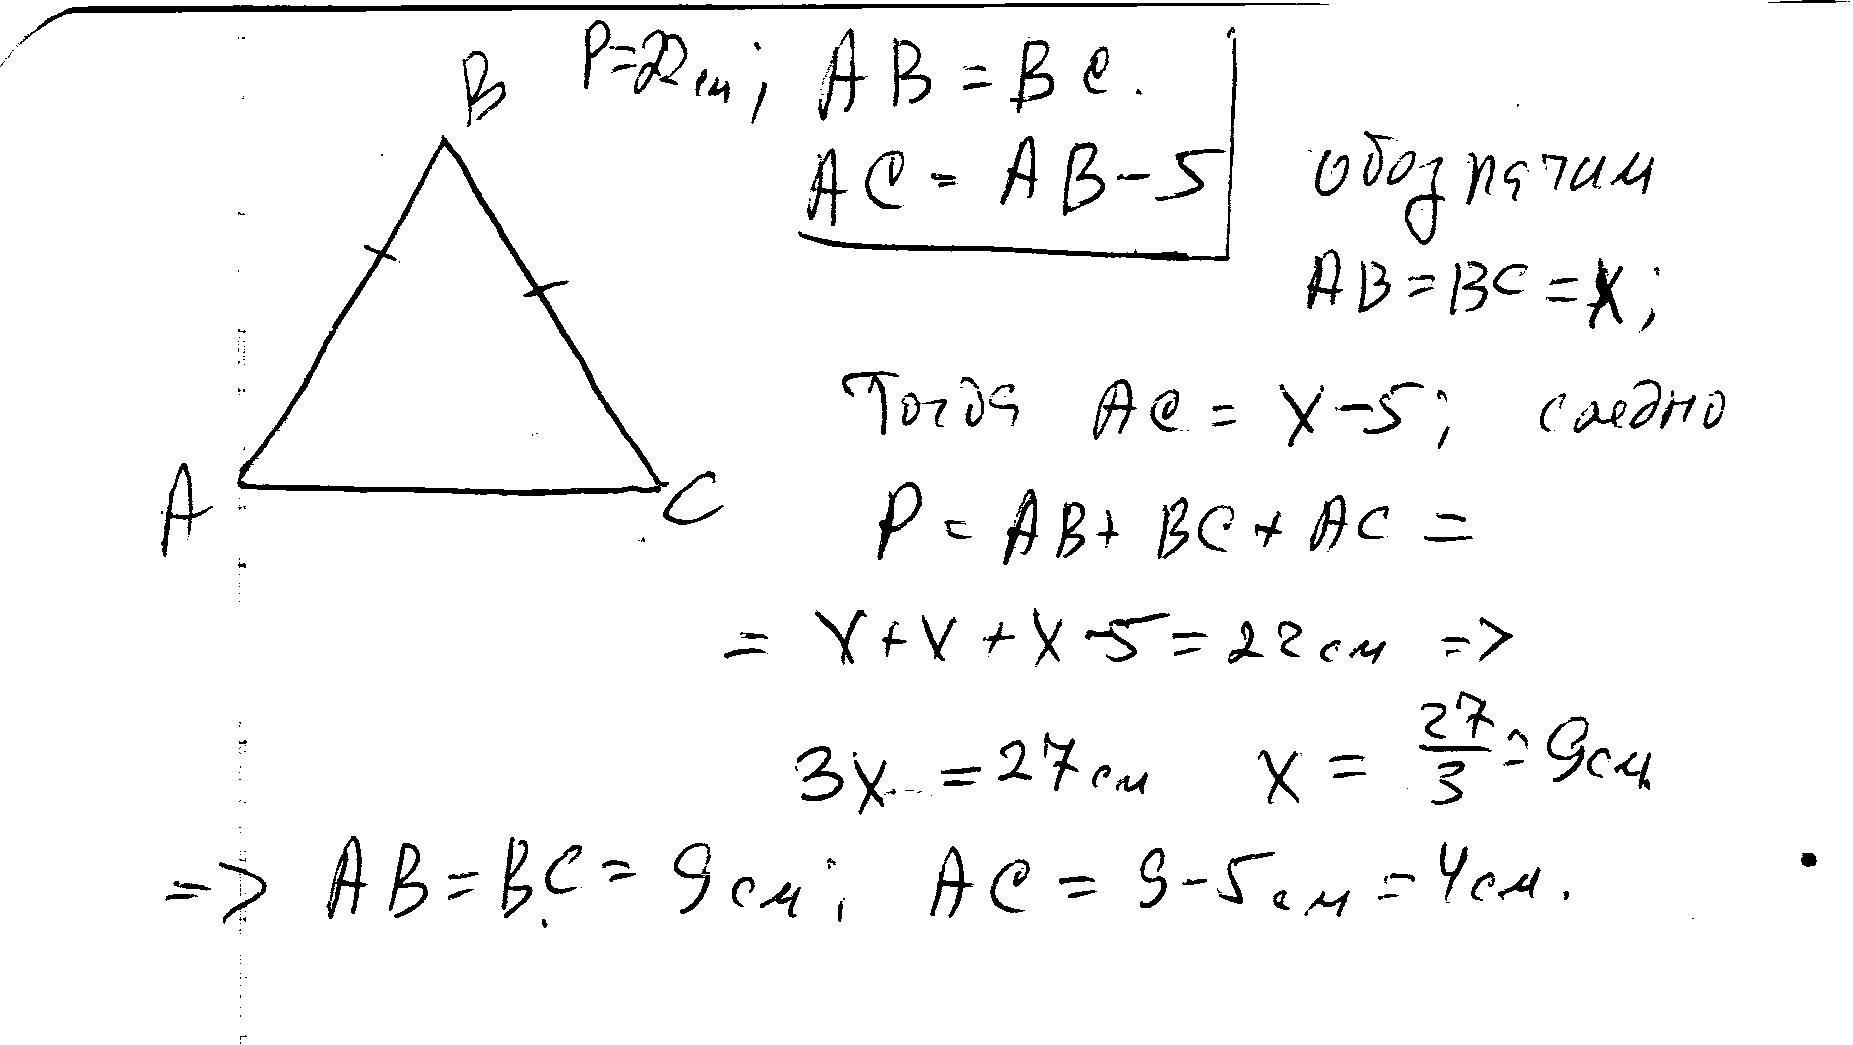 B
P=22см; AB=BC.
AC=AB-5
обозначим
AB=BC=x;
A
C
Тогда AC=x-5; следно
P=AB+BC+AC=
=x+x+x-5=22см =>
3x=27см x=27/3=9см
=> AB=BC=9см; AC=9-5см=4см.